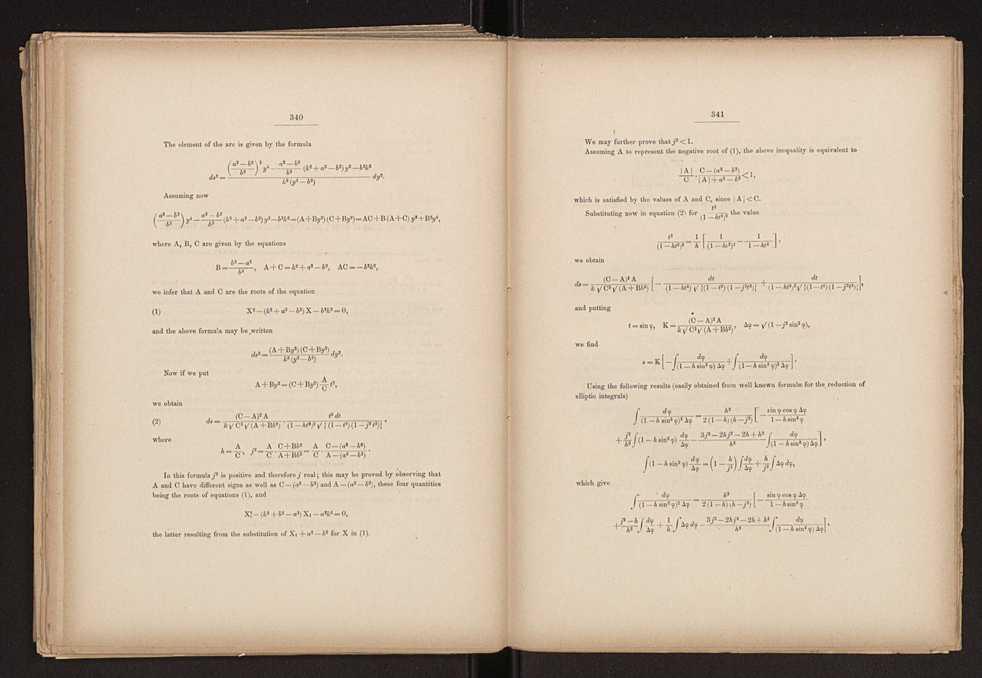 340
The element of the arc is given by the formula
ds² = \frac{\left(\frac{a²−b²}{b²}\right)² y⁴ − \frac{a²−b²}{b²} (k² + a² − b²) y² − b²k²}{k² (y² − b²)} dy².
Assuming now
\left(\frac{a²−b²}{b²}\right)² y⁴ − \frac{a²−b²}{b²} (k² + a² − b²) y² − b²k² = (A + By²) (C + By²) = AC + B (A + C) y² + B²y⁴,
where A, B, C are given by the equations
B = \frac{b²−a²}{b²}, A + C = k² + a² − b², AC = −b²k²,
we infer that A and C are the roots of the equation
(1) X² − (k² + a² − b²) X − b²k² = 0,
and the above formula may be written
ds² = \frac{(A + By²) (C + By²)}{k² (y² − b²)} dy².
Now if we put
A + By² = (C + By²) \frac{A}{C} t²,
we obtain
(2) ds = \frac{(C − A)² A}{k √C³ √(A + Bb²)} · \frac{t² dt}{(1 − ht²)² √{(1 − t²) (1 − j²t²)}},
where
h = \frac{A}{C}, j² = \frac{A}{C} · \frac{C + Bb²}{A + Bb²} = \frac{A}{C} · \frac{C − (a² − b²)}{A − (a² − b²)}.
In this formula j² is positive and therefore j real; this may be proved by observing that
A and C have different signs as well as C − (a² − b²) and A − (a² − b²), these four quantities
being the roots of equations (1), and
X₁² − (k² + b² − a²) X₁ − a²k² = 0,
the latter resulting from the substitution of X₁ + a² − b² for X in (1).
341
We may further prove that j² < 1.
Assuming A to represent the negative root of (1), the above inequality is equivalent to
\frac{|A|}{C} · \frac{C − (a² − b²)}{|A| + a² − b²} < 1,
which is satisfied by the values of A and C, since |A| < C.
Substituting now in equation (2) for \frac{t²}{(1 − ht²)²} the value
\frac{t²}{(1 − ht²)²} = \frac{1}{h} \left[ \frac{1}{(1 − ht²)²} − \frac{1}{1 − ht²} \right],
we obtain
ds = \frac{(C − A)² A}{k √C³ √(A + Bb²)} \left[ − \frac{dt}{(1 − ht²) √{(1 − t²) (1 − j²t²)}} + \frac{dt}{(1 − ht²)² √{(1 − t²) (1 − j²t²)}} \right],
and putting
t = sin φ, K = \frac{(C − A)² A}{k √C³ √(A + Bb²)}, Δφ = √(1 − j² sin² φ),
we find
s = K \left[ − ∫ \frac{dφ}{(1 − h sin² φ) Δφ} + ∫ \frac{dφ}{(1 − h sin² φ)² Δφ} \right].
Using the following results (easily obtained from well known formulæ for the reduction of
elliptic integrals)
∫ \frac{dφ}{(1 − h sin² φ)² Δφ} = \frac{h²}{2 (1 − h) (h − j²)} \left[ − \frac{sin φ cos φ Δφ}{1 − h sin² φ}
+ \frac{j²}{h²} ∫ (1 − h sin² φ) \frac{dφ}{Δφ} − \frac{3j² − 2hj² − 2h + h²}{h²} ∫ \frac{dφ}{(1 − h sin² φ) Δφ} \right],
∫ (1 − h sin² φ) \frac{dφ}{Δφ} = \left( 1 − \frac{h}{j²} \right) ∫ \frac{dφ}{Δφ} + \frac{h}{j²} ∫ Δφ dφ,
which give
∫ \frac{dφ}{(1 − h sin² φ)² Δφ} = \frac{h²}{2 (1 − h) (h − j²)} \left[ − \frac{sin φ cos φ Δφ}{1 − h sin² φ}
+ \frac{j² − h}{h²} ∫ \frac{dφ}{Δφ} + \frac{1}{h} ∫ Δφ dφ − \frac{3j² − 2hj² − 2h + h²}{h²} ∫ \frac{dφ}{(1 − h sin² φ) Δφ} \right],